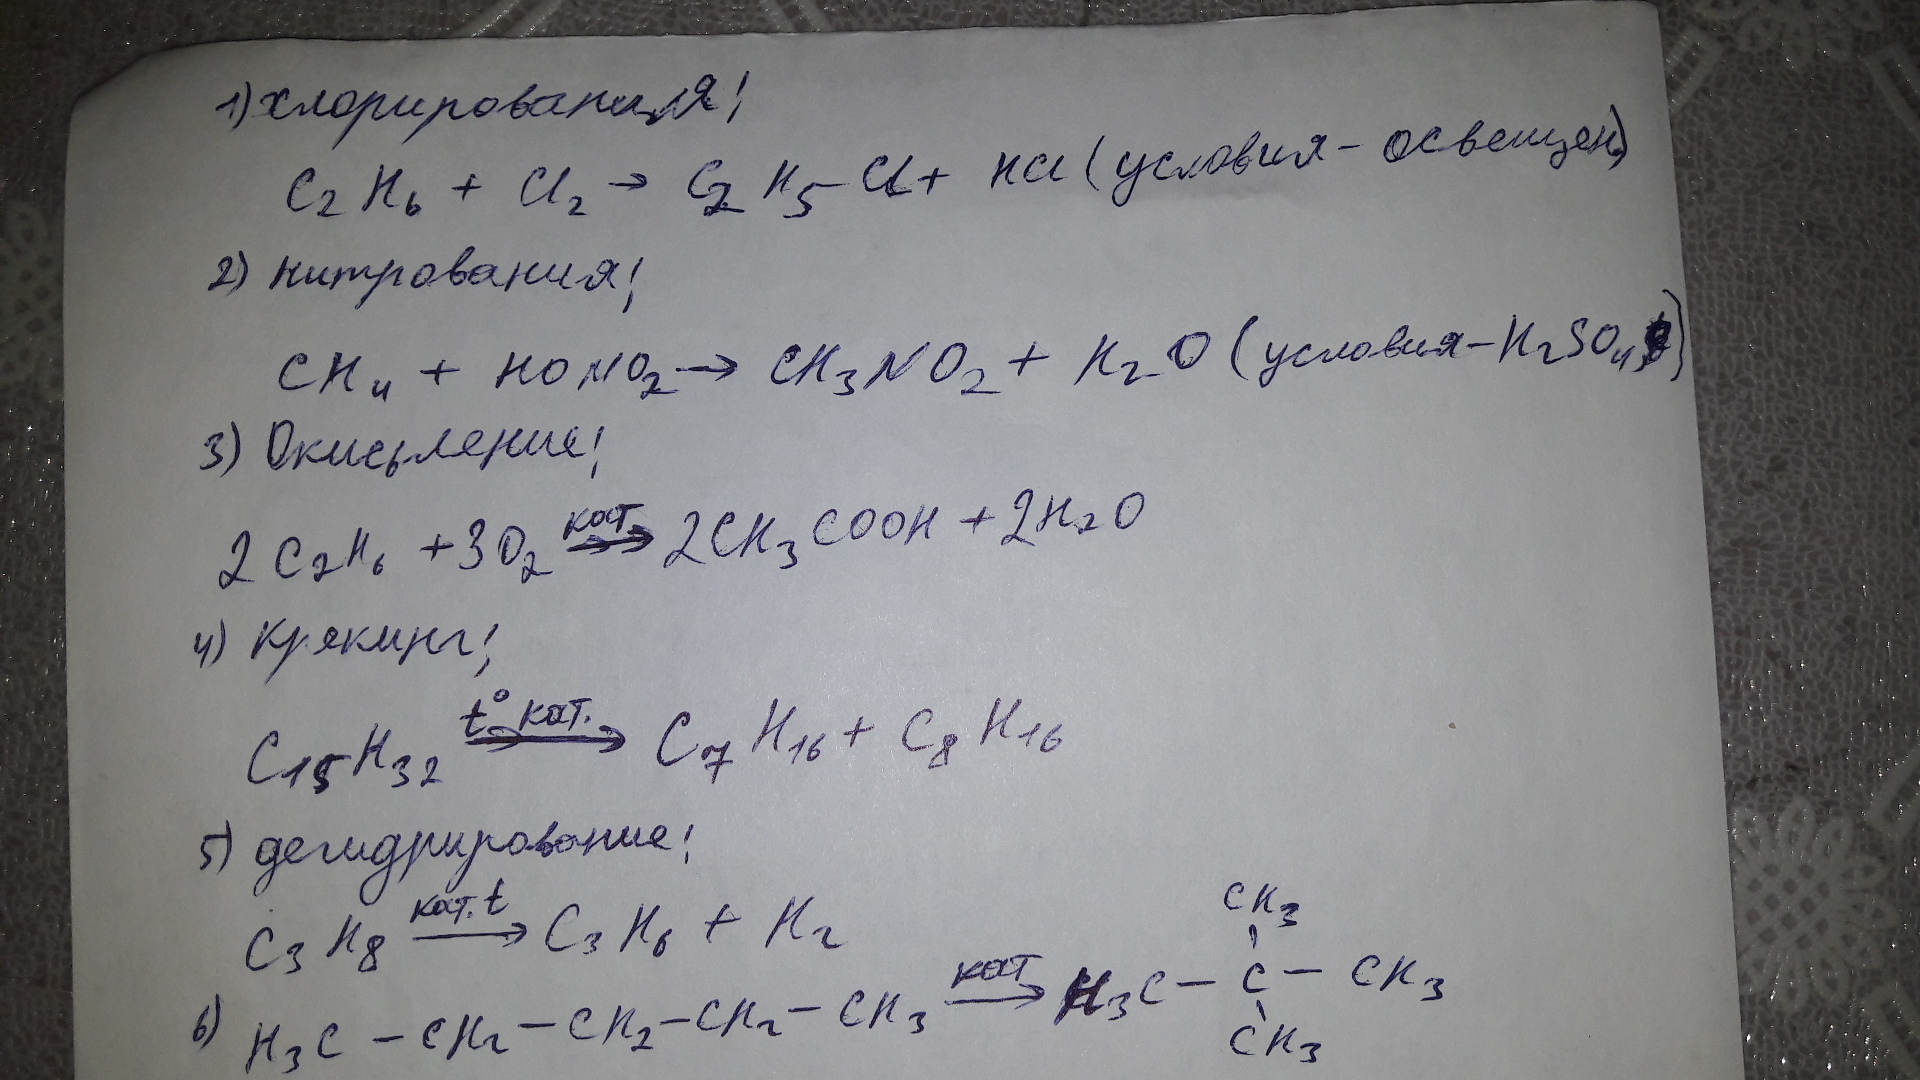 1) хлорирования!
C₂H₆ + Cl₂ → C₂H₅Cl + HCl (условия - освещен)
2) нитрования!
CH₄ + HONO₂ → CH₃NO₂ + H₂O (условия - H₂SO₄)
3) Окисьление!
2C₂H₆ + 3O₂ кат → 2CH₃COOH + 2H₂O
4) крякинг!
C₁₅H₃₂ t° кат. → C₇H₁₆ + C₈H₁₆
5) дегидрирование!
C₃H₈ кат. t → C₃H₆ + H₂
CH₃
6) H₃C - CH₂ - CH₂ - CH₂ - CH₃ кат → H₃C - C - CH₃
CH₃